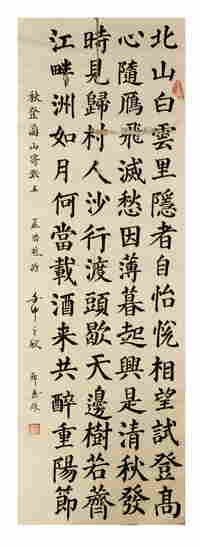 北山白雲里隱者自怡悅相望試登高
心隨鴈飛滅愁因薄暮起興是清秋發
時見歸村人沙行渡頭歇天邊樹若薺
江畔洲如月何當載酒来共醉重陽節
秋登蘭山寄張五 孟浩然詩